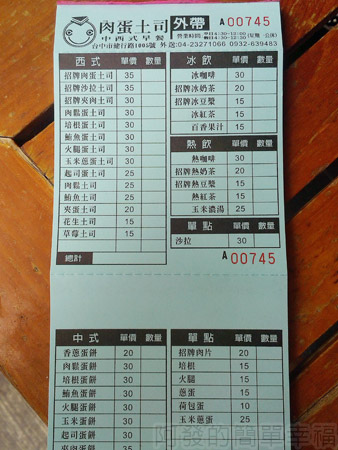 肉蛋土司 外帶 A 00745
中西式早餐
台中市健行路1005號 外送:04-23271066 0932-639483
西式 單價 數量
招牌肉蛋土司 35
招牌沙拉土司 35
招牌夾肉土司 30
肉鬆蛋土司 30
培根蛋土司 30
鮪魚蛋土司 30
火腿蛋土司 30
玉米蔥蛋土司 30
起司蛋土司 25
肉鬆土司 25
鮪魚土司 25
夾蛋土司 20
花生土司 15
草莓土司 15
總計
冰飲 單價 數量
冰咖啡 30
招牌冰奶茶 20
招牌冰豆漿 15
冰紅茶 15
百香果汁 15
熱飲 單價 數量
熱咖啡 30
招牌熱奶茶 20
招牌熱豆漿 15
熱紅茶 15
玉米濃湯 25
單點 單價 數量
沙拉 30
A 00745
中式 單價 數量
香蔥蛋餅 20
肉鬆蛋餅 30
培根蛋餅 30
鮪魚蛋餅 30
火腿蛋餅 30
玉米蛋餅 30
起司蛋餅 30
夾肉蛋餅 35
單點 單價 數量
招牌肉片 20
培根 15
火腿 15
蔥蛋 15
荷包蛋 10
玉米蔥蛋 25
阿發的簡單幸福